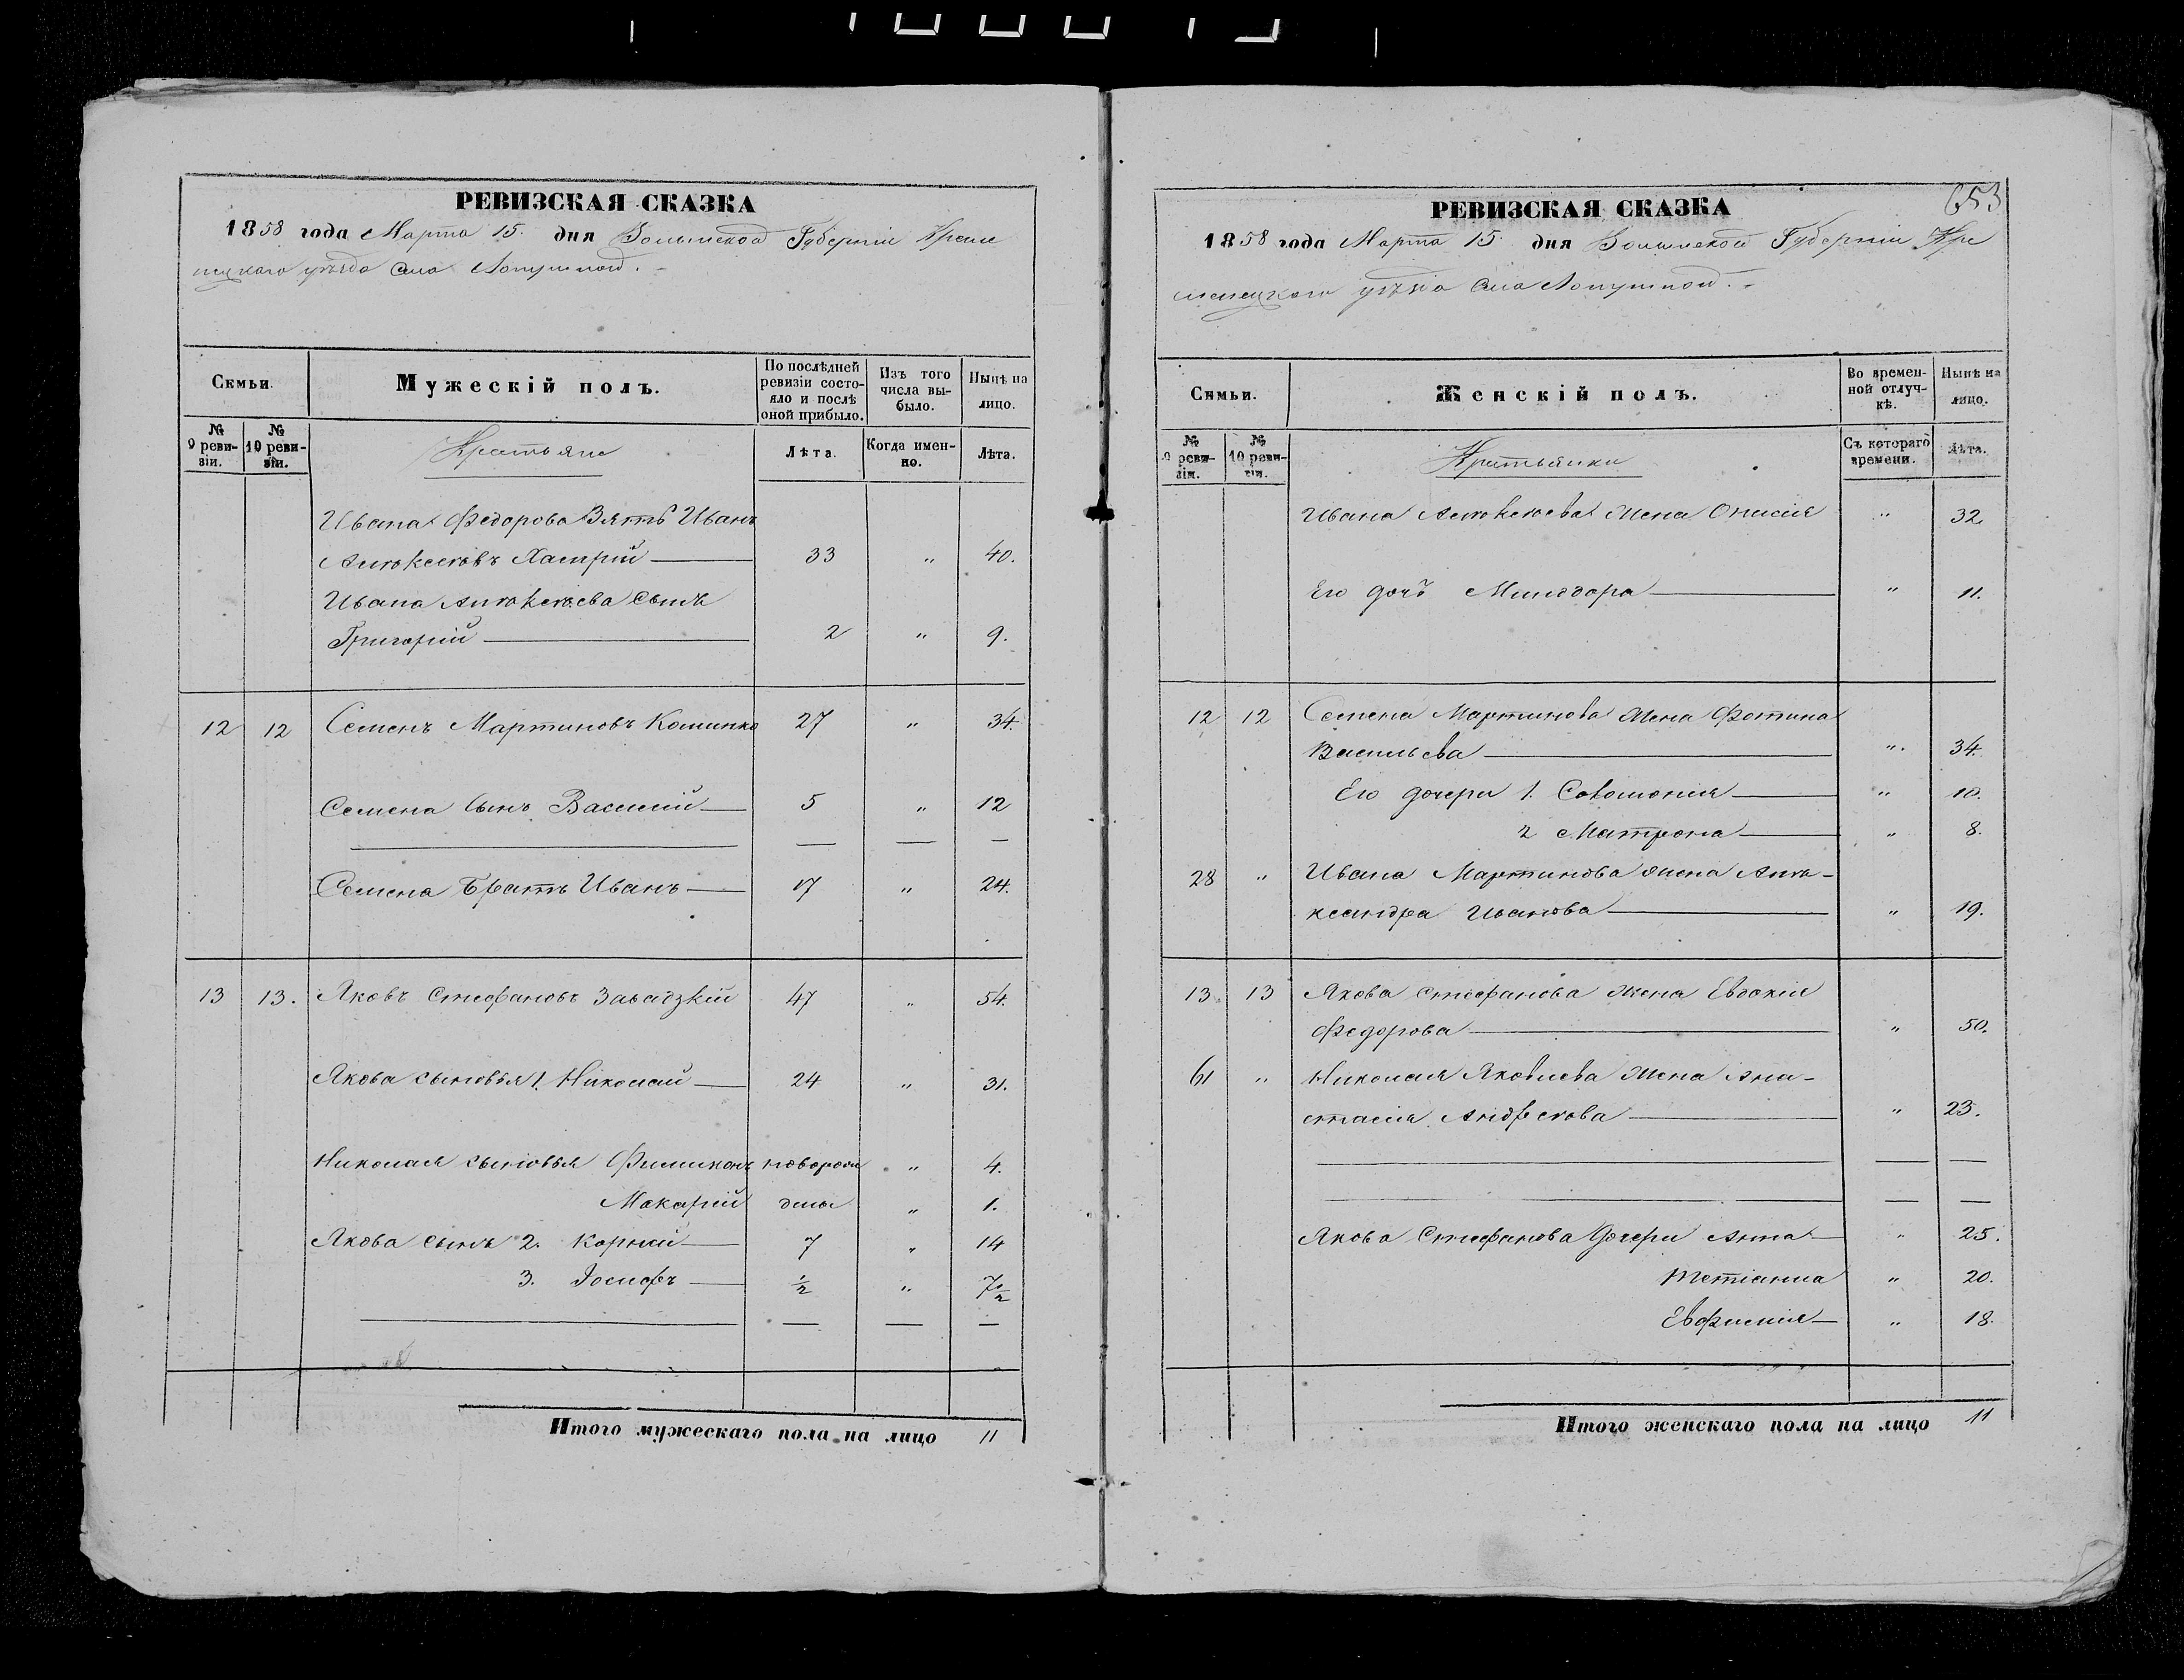 РЕВИЗСКАЯ СКАЗКА
1858 года Марта 15. дня Волынской Губерніи Креме
нецкаго уѣзда села Лопушной.
Семьи.
Мужескій полъ.
По послѣдней ревизіи состояло и послѣ оной прибыло.
Изъ того числа выбыло.
Нынѣ на лицо.
№ 9 ревизіи.
№ 10 ревизіи.
Крестьяне
Лѣта.
Когда именно.
Лѣта.
Ивана Федорова Зять Иванъ
Алексѣевъ 33 " 40.
Ивана Алексѣева Сынъ
Григорій 2 " 9.
12 12 Семенъ Мартиновъ 27 " 34.
Семена Сынъ Василий 5 " 12
Семена Братъ Иванъ 17 " 24.
13 13. Яковъ Стефановъ Завадзкій 47 " 54.
Якова сыновья 1. Николай 24 " 31.
Николая сыновья Филимонъ новорож " 4.
Макарій дены " 1.
Якова сынъ 2. Корней 7 " 14
3. Іосифъ ½ " 7½
Итого мужескаго пола на лицо 11
653
РЕВИЗСКАЯ СКАЗКА
1858 года Марта 15. дня Волынской Губерніи Кре
менецкаго уѣзда села Лопушной.
Семьи.
Женскій полъ.
Во временной отлучкѣ.
Нынѣ на лицо.
№ 9 ревизіи.
№ 10 ревизіи.
Крестьянки
Съ котораго времени.
Лѣта.
Ивана Алексѣева жена Онисія " 32
Его дочь Минодора " 11.
12 12 Семена Мартинова жена Фотина
Васильева " 34.
Его дочери 1. Соломонія " 10.
2 Матрона " 8.
28 " Ивана Мартинова жена Алек-
ксандра Иванова " 19.
13. 13 Якова Стефанова жена Евдокія
Федорова " 50.
61 " Николая Яковлева жена Ана-
стасія Андреева " 23.
Якова Стефанова дочери Анна " 25.
Тетіанна " 20.
Евфимія " 18.
Итого женскаго пола на лицо 11